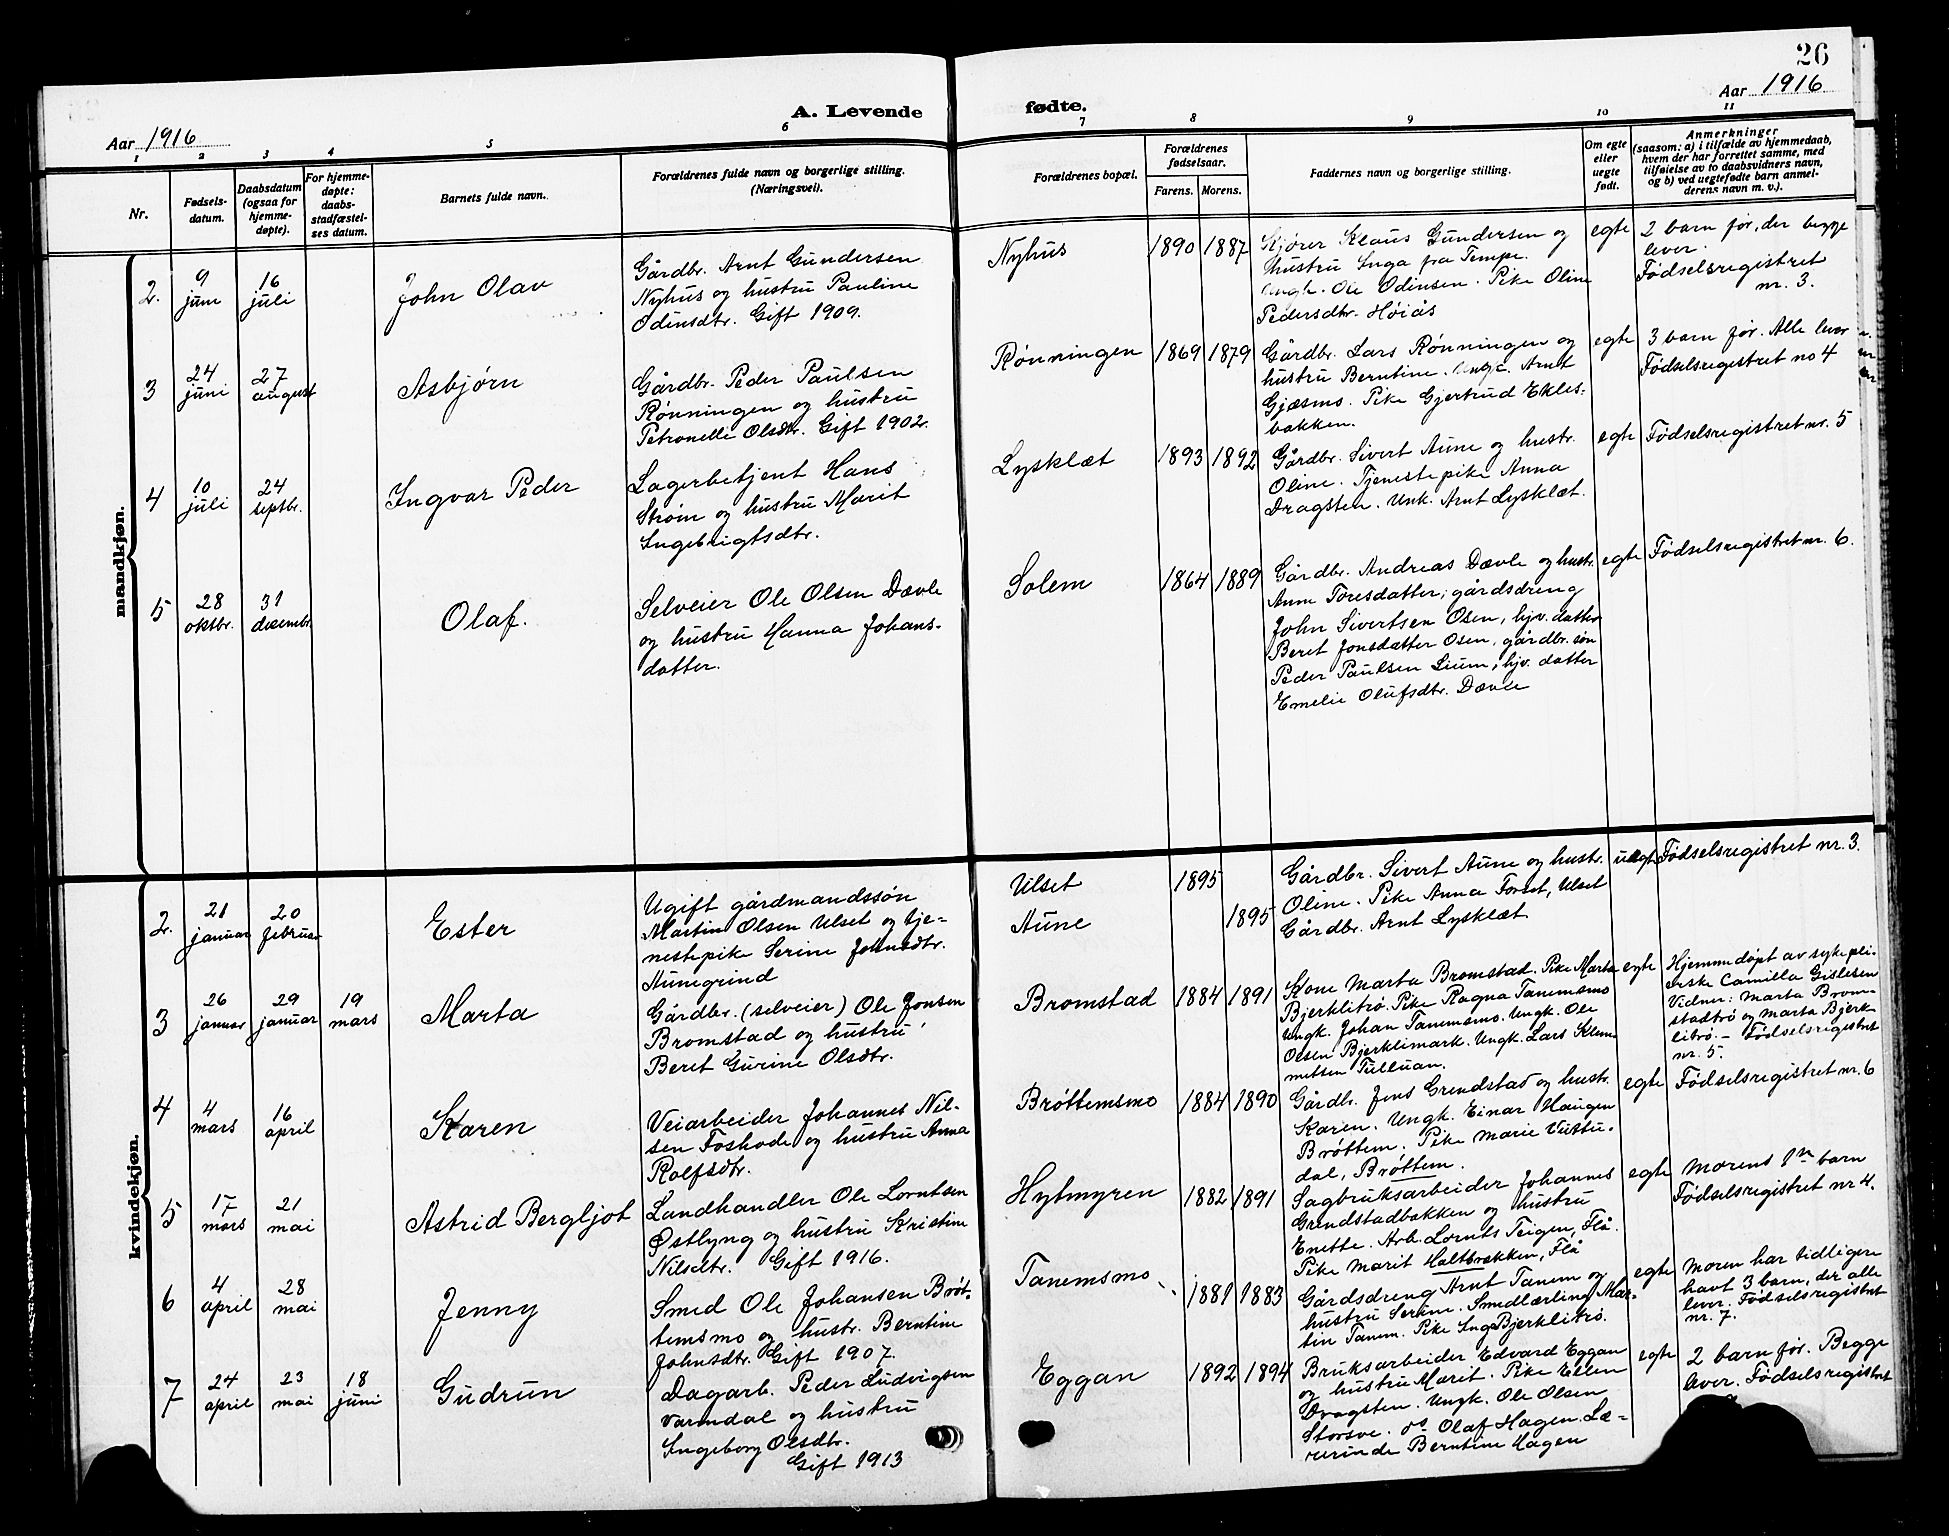 26
Aar 1916
A. Levende
fødte.
Aar 1916
1 2 3 4 5 6 7 8 9 10 11
Nr.
Fødsels-
datum.
Daabsdatum
(ogsaa for
hjemme-
døpte).
For hjemme-
døpte:
daabs-
stadfæstel-
ses datum.
Barnets fulde navn.
Forældrenes fulde navn og borgerlige stilling.
(Næringsvei).
Forældrenes bopæl.
Forældrenes
fødselsaar.
Farens. Morens.
Faddernes navn og borgerlige stilling.
Om egte
eller
uegte
født.
Anmerkninger
(saasom: a) i tilfælde av hjemmedaab,
hvem der har forrettet samme, med
tilføielse av to daabsvidners navn,
og b) ved uegtefødte barn anmel-
derens navn m. v.).
mandkjøn.
2.
9
juni
16
juli
John Olav
Gårdbr. Arnt Gundersen
Nyhus og hustru Pauline
Odinsdtr. Gift 1909.
Nyhus
1890 1887
Kjører Klaus Gundersen og
hustru Inga fra Tempe.
Ungk. Ole Odinsen. Pike Oline
Pedersdtr. Høiås
egte
2 barn før, der begge
lever.
Fødselsregistret
nr. 3.
3
24
juni
27
august
Asbjørn
Gårdbr. Peder Paulsen
Rønningen og hustru
Petronelle Olsdtr. Gift 1902.
Rønningen
1869 1879
Gårdbr. Lars Rønningen og
hustru Berntine. Ungk. Arnt
Gjæsmo. Pike Gjertrud Ekles-
bakken.
egte
3 barn før. Alle lever
Fødselsregistret no 4
4
10
juli
24
septbr.
Ingvar Peder
Lagerbetjent Hans
Strøm og hustru Marit
Ingebrigtsdtr.
Lysklæt
1893 1892
Gårdbr. Sivert Aune og hustr.
Oline. Tjenestepike Anna
Dragsten. Unk. Arnt Lysklæt.
egte
Fødselsregistret nr. 5
5
28
oktbr.
31
desembr.
Olaf.
Selveier Ole Olsen Dævle
og hustru Hanna Johans-
datter.
Solem
1864 1889
Gårdbr. Andreas Dævle og hustr.
Anne Toresdatter; gårdsdreng
John Sivertsen Osen, hjv. datter
Beret Jonsdatter Osen, gårdbr. søn
Peder Paulsen Lium; hjv. datter
Emelie Olufsdtr. Dævle
egte
Fødselsregistret nr. 6.
kvindekjøn.
2.
21
januar
20
februar
Ester
Ugift gårdmandssøn
Martin Olsen Ulset og tje-
nestepike Serine Johnsdtr.
Aunegrind
Ulset
Aune
1895
1895
Gårdbr. Sivert Aune og hustr.
Oline. Pike Anna Forset, Ulset
Gårdbr. Arnt Lysklæt
uegte
Fødselsregistret nr. 3.
3
26
januar
29
januar
19
mars
Marta
Gårdbr. (selveier) Ole Jonsen
Bromstad og hustru
Beret Gurine Olsdtr.
Bromstad
1884 1891
Kone Marta Bromstad. Pike Marta
Bjerklitrø. Pike Ragna Tanemsmo
Ungk. Johan Tanemsmo. Ungk. Ole
Olsen Bjerklimark. Ungk. Lars Klem-
metsen Tulluan.
egte
Hjemmedøpt av sykeplei-
erske Camilla Gislesen
Vidner: Marta Brom-
stadtrø og Marta Bjerk-
litrø. – Fødselsregistret
nr. 5.
4
4
mars
16
april
Karen
Veiarbeider Johannes Nil-
sen Foshode og hustru Anna
Rolfsdtr.
Brøttemsmo
1884 1890
Gårdbr. Jens Grendstad og hustr.
Karen. Ungk. Einar Haugen
Brøttem. Pike Marie Vuttu-
dal, Brøttem.
egte
Fødselsregistret nr. 6
5
17
mars
21
mai
Astrid Bergljot
Landhandler Ole Lorntsen
Østlyng og hustru Kristine
Nilsdtr. Gift 1916.
Hytmyren
1882 1891
Sagbruksarbeider Johannes
Grendstadbakken og hustru
Enette. Arb. Lornts Teigen, Flå.
Pike Marit Haltbrekken, Flå
egte
Morens 1ste barn
Fødselsregistret nr 4.
6
4
april
28
mai
Jenny
Smed Ole Johansen Brøt-
temsmo og hustr. Berntine
Johnsdtr. Gift 1907.
Tanemsmo
1881 1883
Gårdsdreng Arnt Tanem og
hustru Serine. Smedlærling Mar-
tin Tanem. Pike Inga Bjerklitrø.
egte
Moren har tidligere
havt 3 barn, der alle
lever. Fødselsregistret
nr. 7.
7
24
april
23
mai
18
juni
Gudrun
Dagarb. Peder Ludvigsen
Varmdal og hustru
Ingeborg Olsdtr.
Gift 1913
Eggan
1892 1894
Bruksarbeider Edvard Eggan
og hustru Marit. Pike Ellen
Dragsten. Ungk. Ole Olsen
Storsve. do Olaf Hagen. Læ-
rerinde Berntine Hagen
egte
2 barn før. Begge
lever. Fødselsregistret